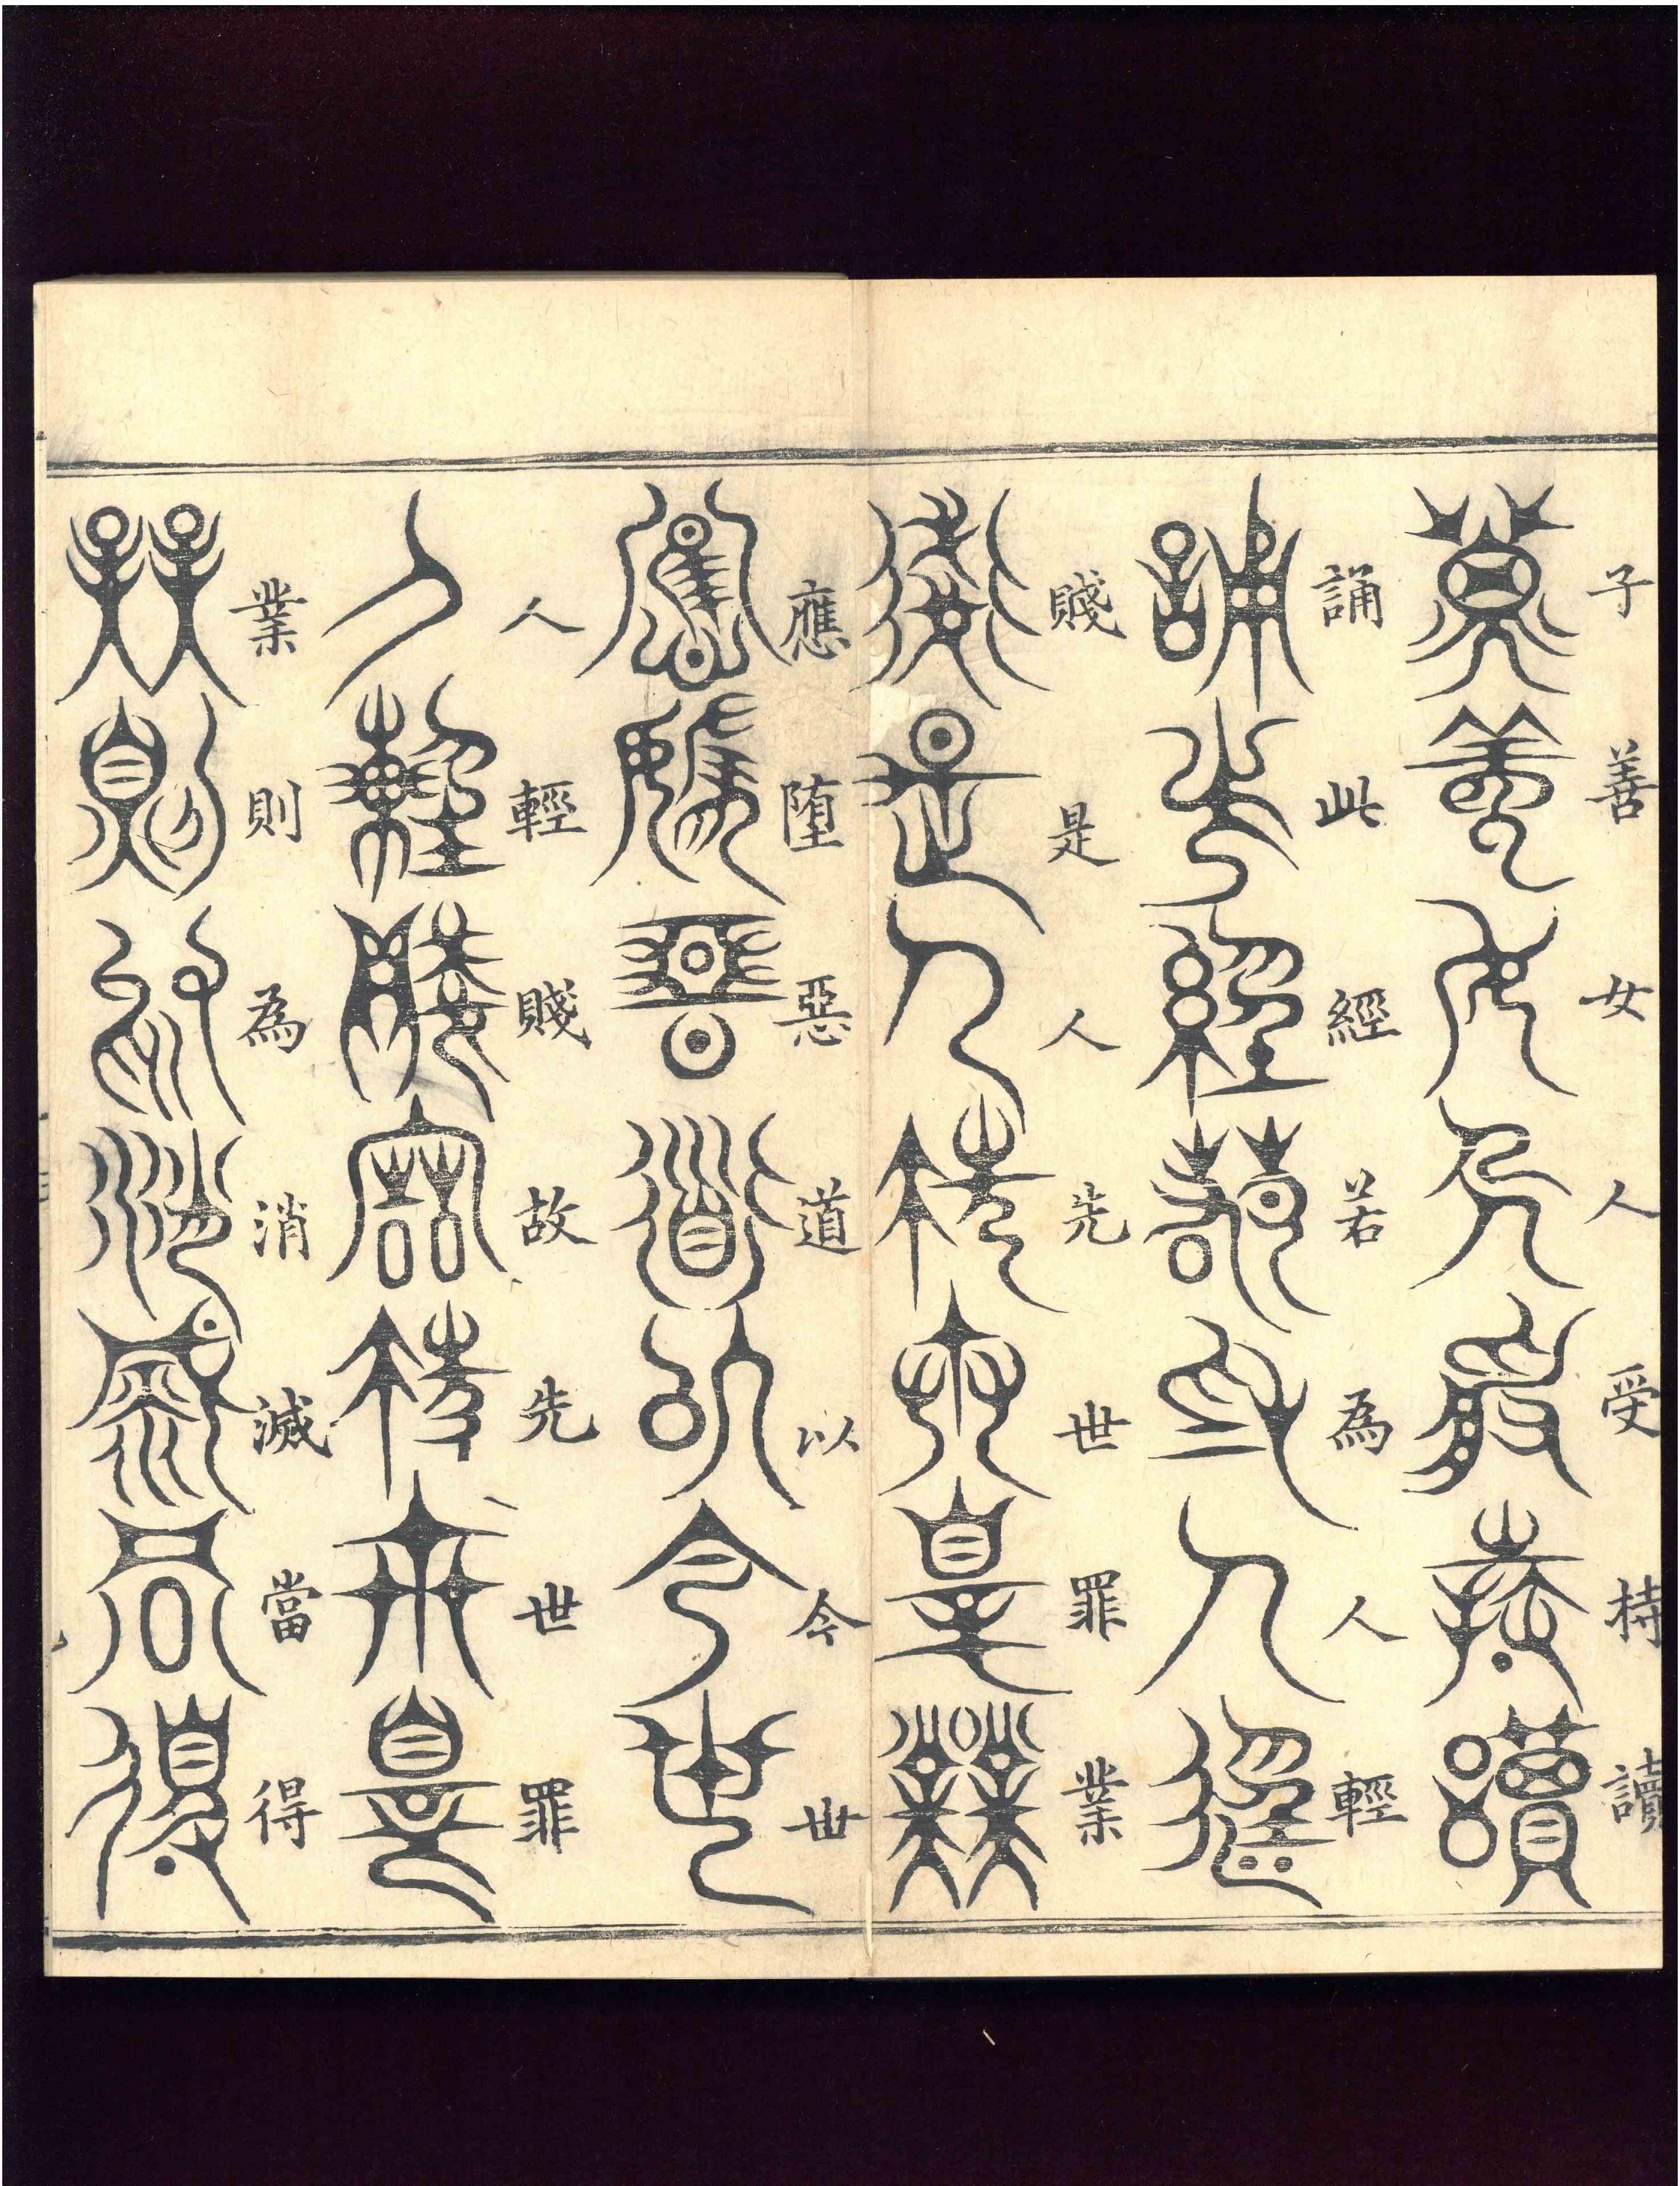 子善女人受持讀
誦此經若為人輕
賤是人先世罪業
應墮惡道以今世
人輕賤故先世罪
業則為消滅當得